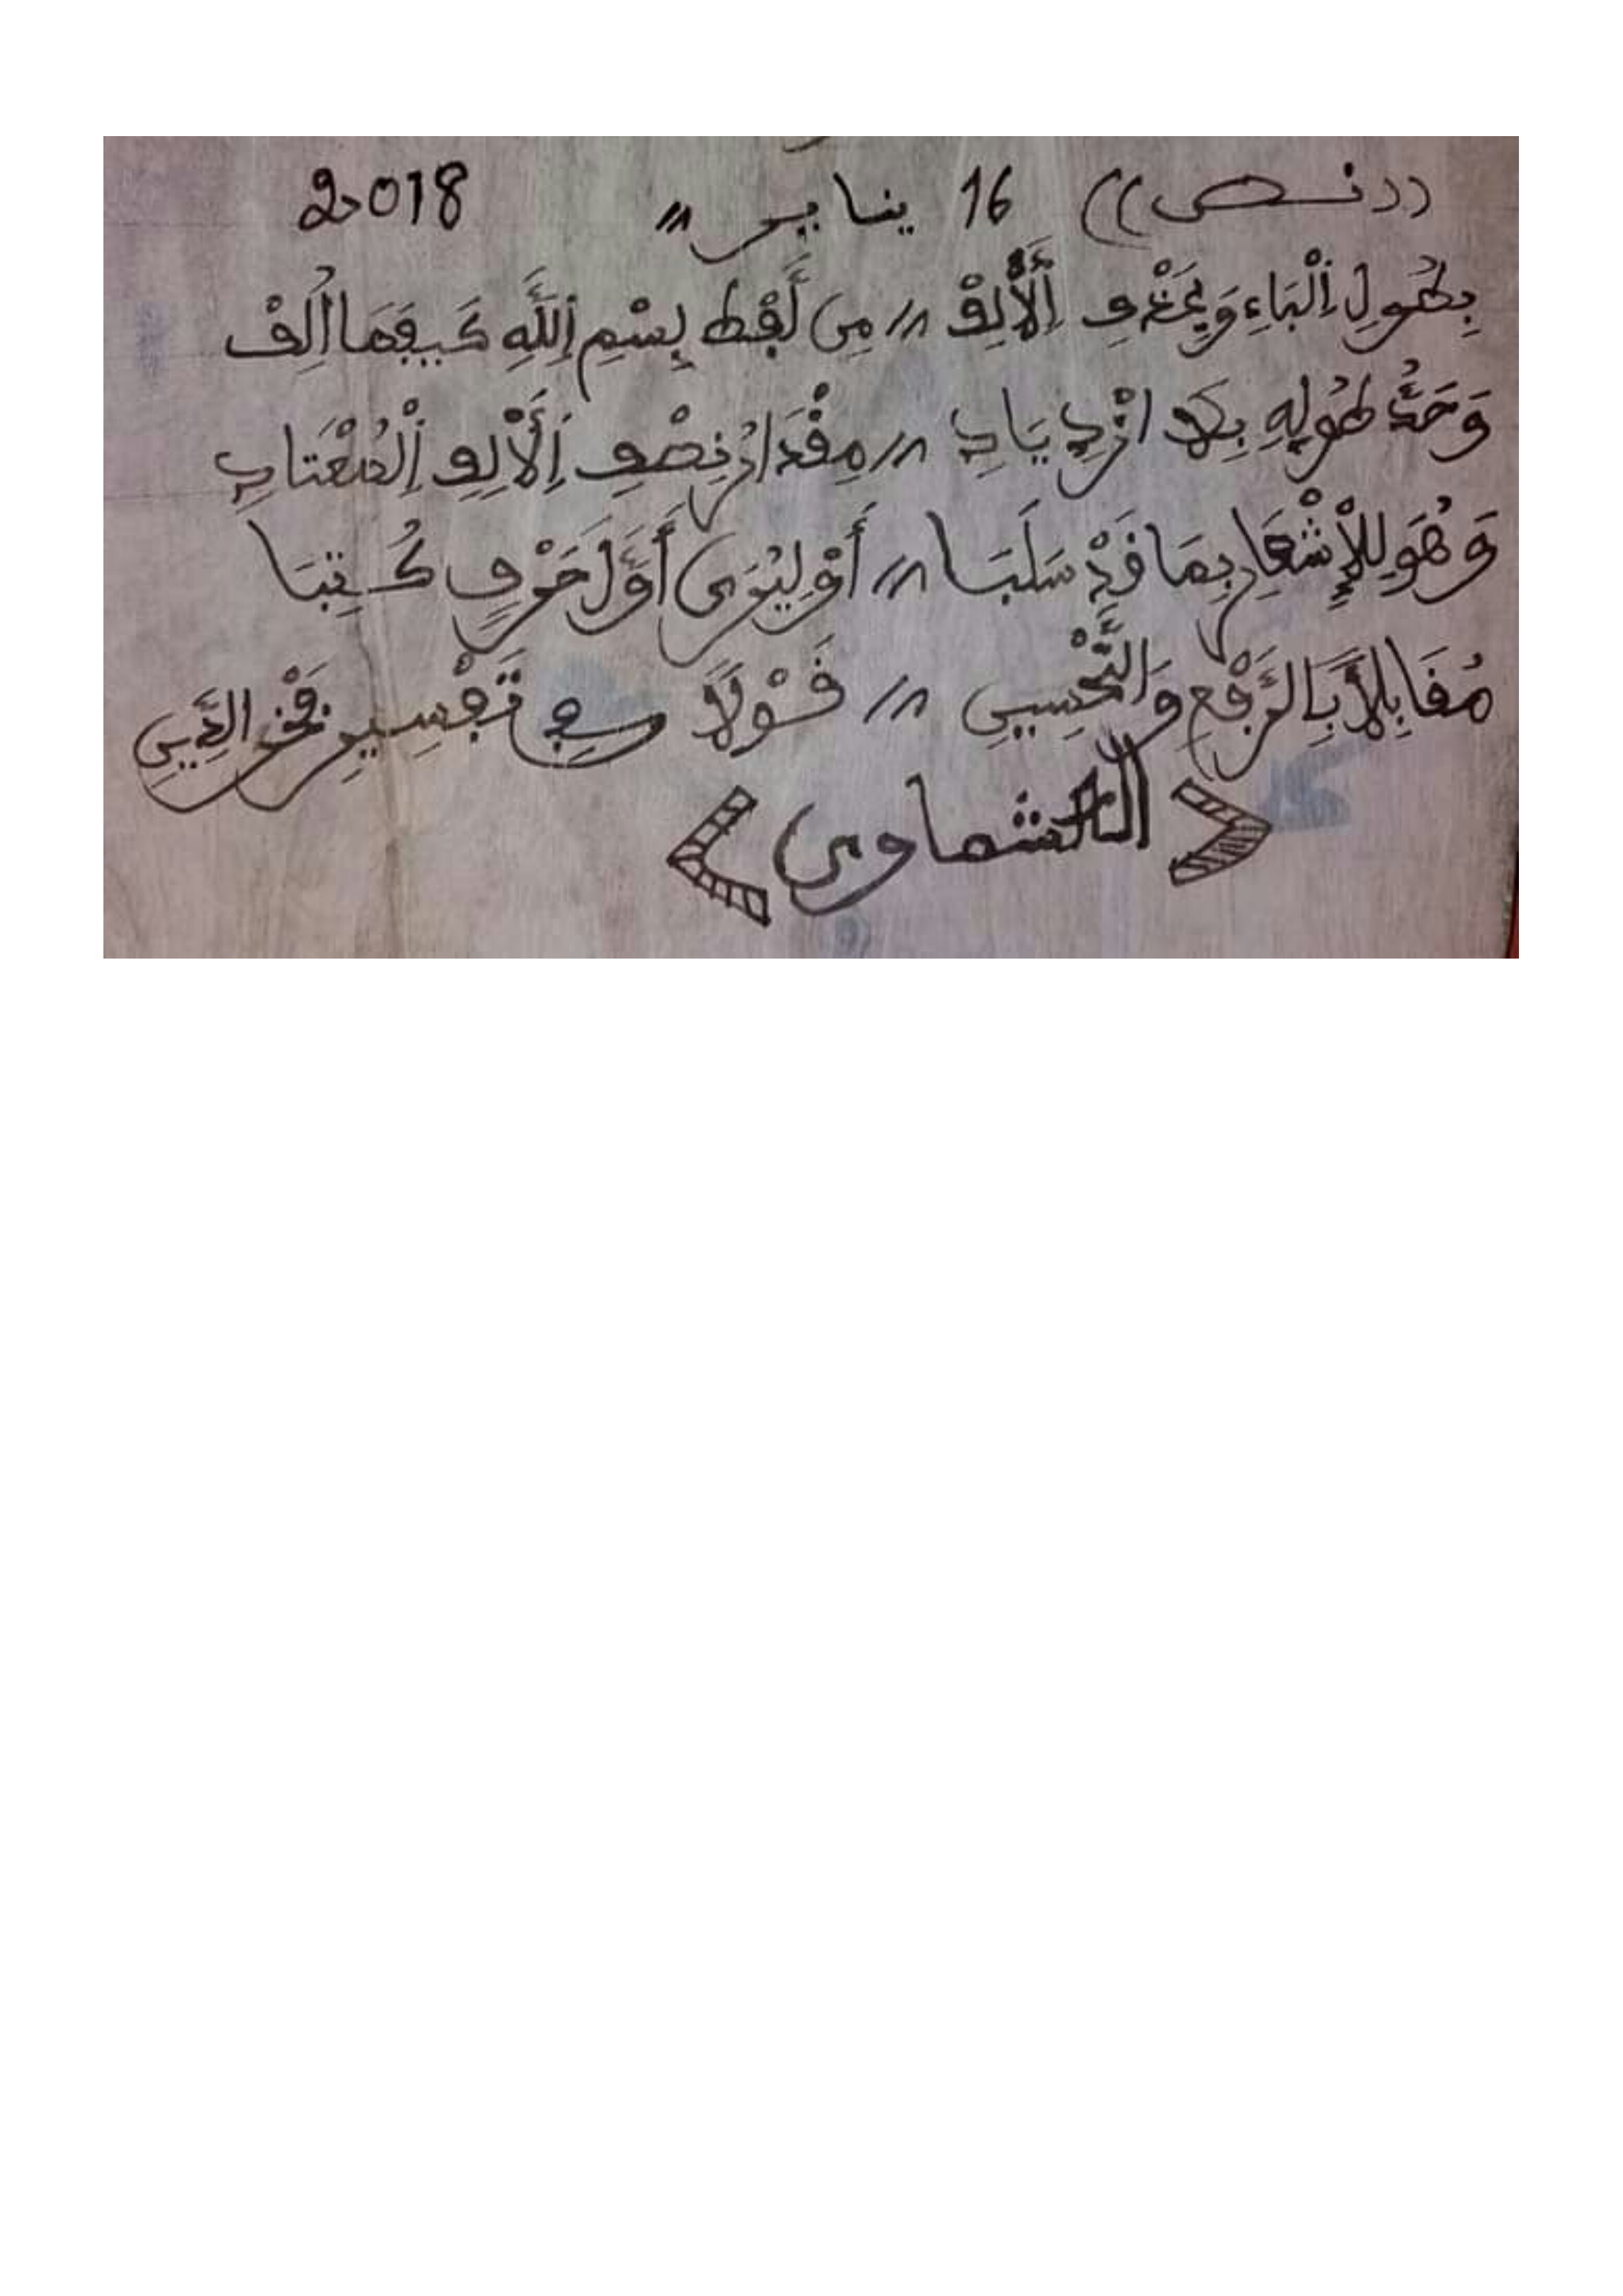 ((نص)) 16 يناير // 2018
بِطُولِ اِلْبَاءِ وَبِحَذْفِ اِلْأَلِفْ // مِن لَّفْظِ بِسْمِ اِللَّهِ كَيْفَمَا أُلِفْ
وَحَدُّ طُولِهِ بِلَا ازْدِيَادِ // مِقْدَارُ نِصْفِ اِلْأَلِفِ اِلْمُعْتَادِ
وَهُوَ لِلْإِشْعَارِ بِمَا قَدْ سَلَبَا // أَوْ لِيُرَى أَوَّلَ حَرْفٍ كُتِبَا
مُقَابِلاً بِالرَّفْعِ وَالتَّحْسِينِ // قَوْلَانِ فِي تَفْسِيرِ فَخْرِ الدِّينِ